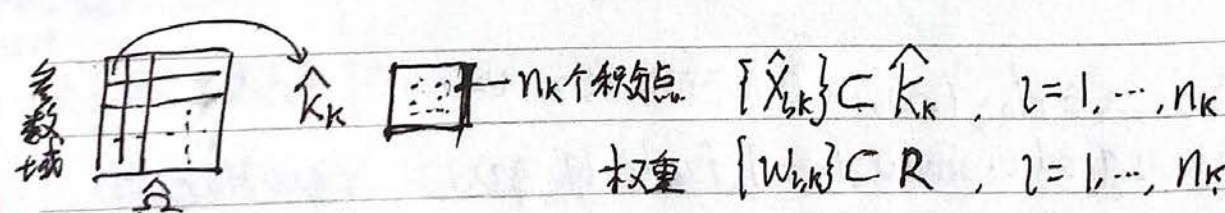 参数域 $\hat{K}_K$ → $n_K$个积分点 $\{\hat{X}_{l,K}\} \subset \hat{K}_K$, $l=1,\cdots,n_K$
权重 $\{W_{l,K}\} \subset R$, $l=1,\cdots,n_K$
$\hat{\Omega}$